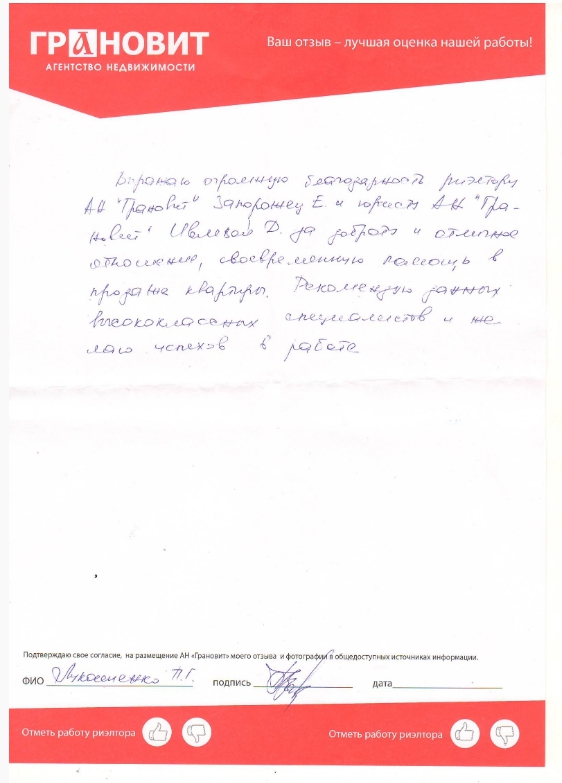 ГРАНОВИТ
АГЕНТСТВО НЕДВИЖИМОСТИ
Ваш отзыв – лучшая оценка нашей работы!
Выражаю огромную благодарность риэлтору
АН "Грановит" Запорожец Е. и юристу АН "Гра-
новит" Ивлевой Д. за доброту и отличное
отношение, своевременную помощь в
продаже квартиры. Рекомендую данных
высококлассных специалистов и же
лаю успехов в работе
Подтверждаю свое согласие, на размещение АН «Грановит» моего отзыва и фотографии в общедоступных источниках информации.
ФИО Лукосиенко П.Г. подпись дата
Отметь работу риэлтора Отметь работу риэлтора